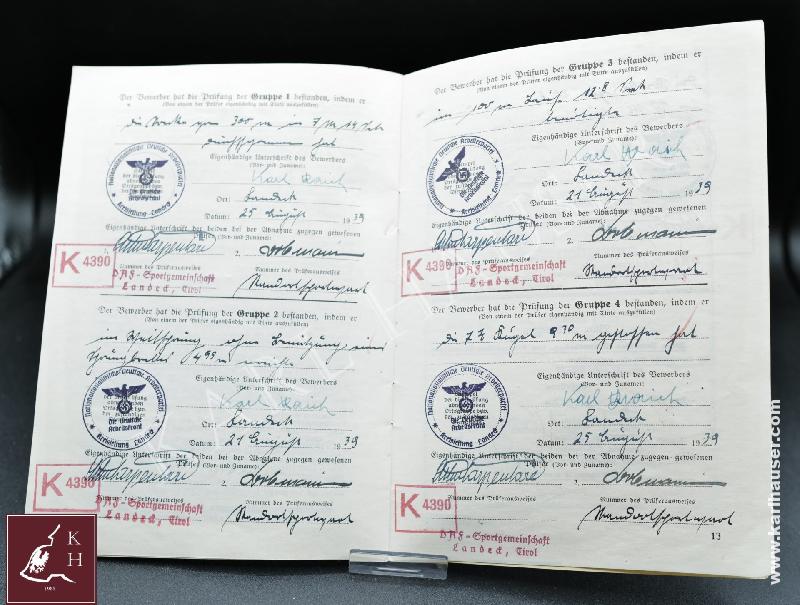 Der Bewerber hat die Prüfung der Gruppe 1 bestanden, indem er
(Von einem der Prüfer eigenhändig mit Tinte auszufüllen)
die Strecke von 300 m in 7 M 14 Sek
durchschwommen hat
Nationalsozialistische Deutsche Arbeiterpartei
Die Deutsche
Arbeitsfront
Kreisleitung Landeck
Eigenhändige Unterschrift des Bewerbers
(Vor- und Zuname):
Karl Raich
Ort: Landeck
Datum: 25 August 1939
Eigenhändige Unterschrift der beiden bei der Abnahme zugegen gewesenen
Prüfer (Vor- und Zuname):
2.
K 4390
Nummer des Prüferausweises
Nummer des Prüferausweises
DAF-Sportgemeinschaft
Landeck, Tirol
Standortsportwart
Der Bewerber hat die Prüfung der Gruppe 2 bestanden, indem er
(Von einem der Prüfer eigenhändig mit Tinte auszufüllen)
im Weitsprung ohne Benützung eines
4,95 m
Nationalsozialistische Deutsche Arbeiterpartei
Die Deutsche
Arbeitsfront
Kreisleitung Landeck
Eigenhändige Unterschrift des Bewerbers
(Vor- und Zuname):
Karl Raich
Ort: Landeck
Datum: 21 August 1939
Eigenhändige Unterschrift der beiden bei der Abnahme zugegen gewesenen
Prüfer (Vor- und Zuname):
2.
K 4390
Nummer des Prüferausweises
Nummer des Prüferausweises
DAF-Sportgemeinschaft
Landeck, Tirol
Standortsportwart
Der Bewerber hat die Prüfung der Gruppe 3 bestanden, indem er
(Von einem der Prüfer eigenhändig mit Tinte auszufüllen)
im 100 m Laufe 12.8 Sek
benötigte
Nationalsozialistische Deutsche Arbeiterpartei
Die Deutsche
Arbeitsfront
Kreisleitung Landeck
Eigenhändige Unterschrift des Bewerbers
(Vor- und Zuname):
Karl Raich
Ort: Landeck
Datum: 21 August 1939
Eigenhändige Unterschrift der beiden bei der Abnahme zugegen gewesenen
Prüfer (Vor- und Zuname):
2.
K 4390
Nummer des Prüferausweises
Nummer des Prüferausweises
DAF-Sportgemeinschaft
Landeck, Tirol
Standortsportwart
Der Bewerber hat die Prüfung der Gruppe 4 bestanden, indem er
(Von einem der Prüfer eigenhändig mit Tinte auszufüllen)
die 7¼ Kugel 9.70 m gestoßen hat
Nationalsozialistische Deutsche Arbeiterpartei
Die Deutsche
Arbeitsfront
Kreisleitung Landeck
Eigenhändige Unterschrift des Bewerbers
(Vor- und Zuname):
Karl Raich
Ort: Landeck
Datum: 25 August 1939
Eigenhändige Unterschrift der beiden bei der Abnahme zugegen gewesenen
Prüfer (Vor- und Zuname):
2.
K 4390
Nummer des Prüferausweises
Nummer des Prüferausweises
DAF-Sportgemeinschaft
Landeck, Tirol
Standortsportwart
13
K
H
www.karlhauser.com